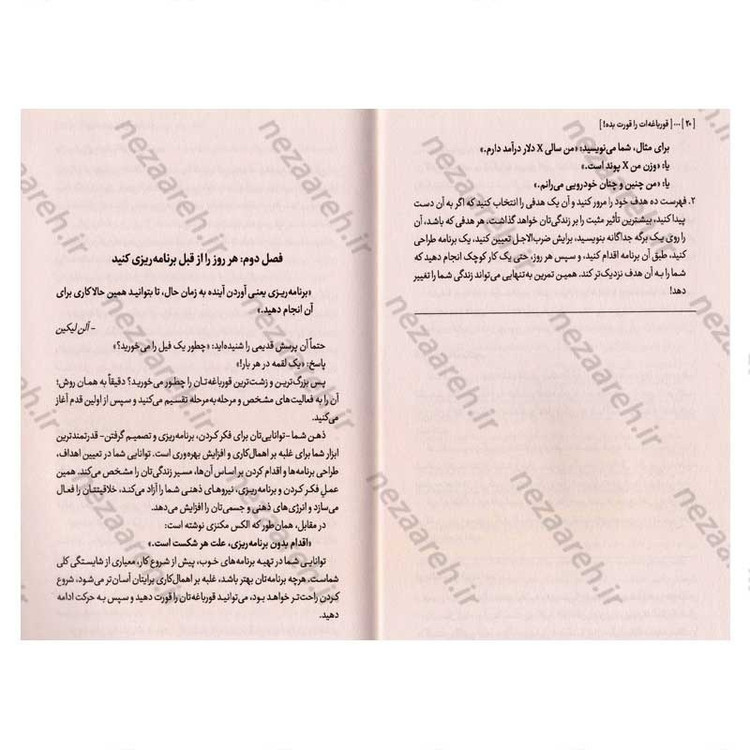 [ ۲۰ ] ... [ قورباغه‌ات را قورت بده! ]
برای مثال، شما می‌نویسید: «من سالی X دلار درآمد دارم.»
یا: «وزن من X پوند است.»
یا: «من چنین و چنان خودرویی می‌رانم.»
۲. فهرست ده هدف خود را مرور کنید و آن یک هدفی را انتخاب کنید که اگر به آن دست
پیدا کنید، بیشترین تأثیر مثبت را بر زندگی‌تان خواهد گذاشت. هر هدفی که باشد، آن
را روی یک برگه جداگانه بنویسید، برایش ضرب‌الاجل تعیین کنید، یک برنامه طراحی
کنید، طبق آن برنامه اقدام کنید، و سپس هر روز، حتی یک کار کوچک انجام دهید که
شما را به آن هدف نزدیک‌تر کند. همین تمرین به‌تنهایی می‌تواند زندگی شما را تغییر
دهد!
فصل دوم: هر روز را از قبل برنامه‌ریزی کنید
«برنامه‌ریزی یعنی آوردن آینده به زمان حال، تا بتوانید همین حالا کاری برای
آن انجام دهید.»
- آلن لیکین
حتماً آن پرسش قدیمی را شنیده‌اید: «چطور یک فیل را می‌خورید؟»
پاسخ: «یک لقمه در هر بار!»
پس بزرگ‌ترین و زشت‌ترین قورباغه‌تان را چطور می‌خورید؟ دقیقاً به همان روش؛
آن را به فعالیت‌های مشخص و مرحله‌به‌مرحله تقسیم می‌کنید و سپس از اولین قدم آغاز
می‌کنید.
ذهن شما -توانایی‌تان برای فکر کردن، برنامه‌ریزی و تصمیم گرفتن- قدرتمندترین
ابزار شما برای غلبه بر اهمال‌کاری و افزایش بهره‌وری است. توانایی شما در تعیین اهداف،
طراحی برنامه‌ها و اقدام کردن بر اساس آن‌ها، مسیر زندگی‌تان را مشخص می‌کند. همین
عمل فکر کردن و برنامه‌ریزی، نیروهای ذهنی شما را آزاد می‌کند، خلاقیتتان را فعال
می‌سازد و انرژی‌های ذهنی و جسمی‌تان را افزایش می‌دهد.
در مقابل، همان‌طور که الکس مکنزی نوشته است:
«اقدام بدون برنامه‌ریزی، علت هر شکست است.»
توانایی شما در تهیه برنامه‌های خوب، پیش از شروع کار، معیاری از شایستگی کلی
شماست. هرچه برنامه‌تان بهتر باشد، غلبه بر اهمال‌کاری برایتان آسان‌تر می‌شود، شروع
کردن راحت‌تر خواهد بود، می‌توانید قورباغه‌تان را قورت دهید و سپس به حرکت ادامه
دهید.
nezaareh.ir
nezaareh.ir
nezaareh.ir
nezaareh.ir
nezaareh.ir
nezaareh.ir
nezaareh.ir
nezaareh.ir
nezaareh.ir
nezaareh.ir
nezaareh.ir
nezaareh.ir
nezaareh.ir